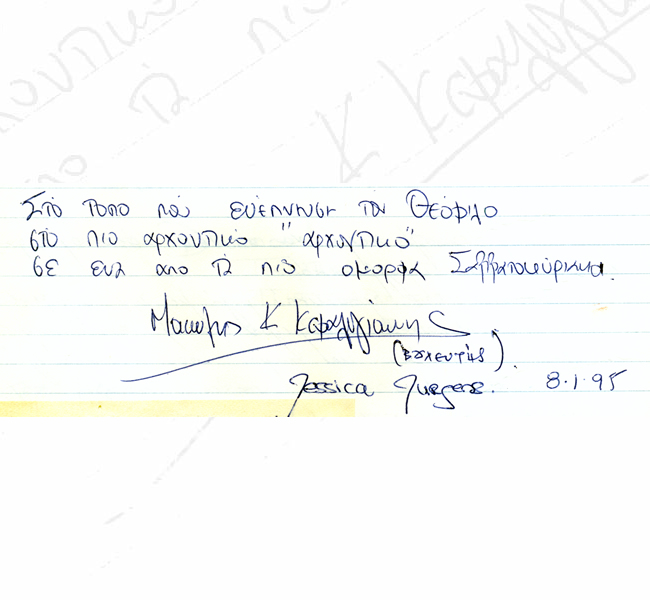 Στο τοπο που ενέπνευσε τον Θεόφιλο
στο πιο αρχοντικό "αρχοντικό"
σε ενα απο τα πιο ομορφα Σαββατοκύριακα.
Μανώλης Κ Κεφαλογιάννης
(βουλευτής).
Jessica Jurgens. 8.1.95